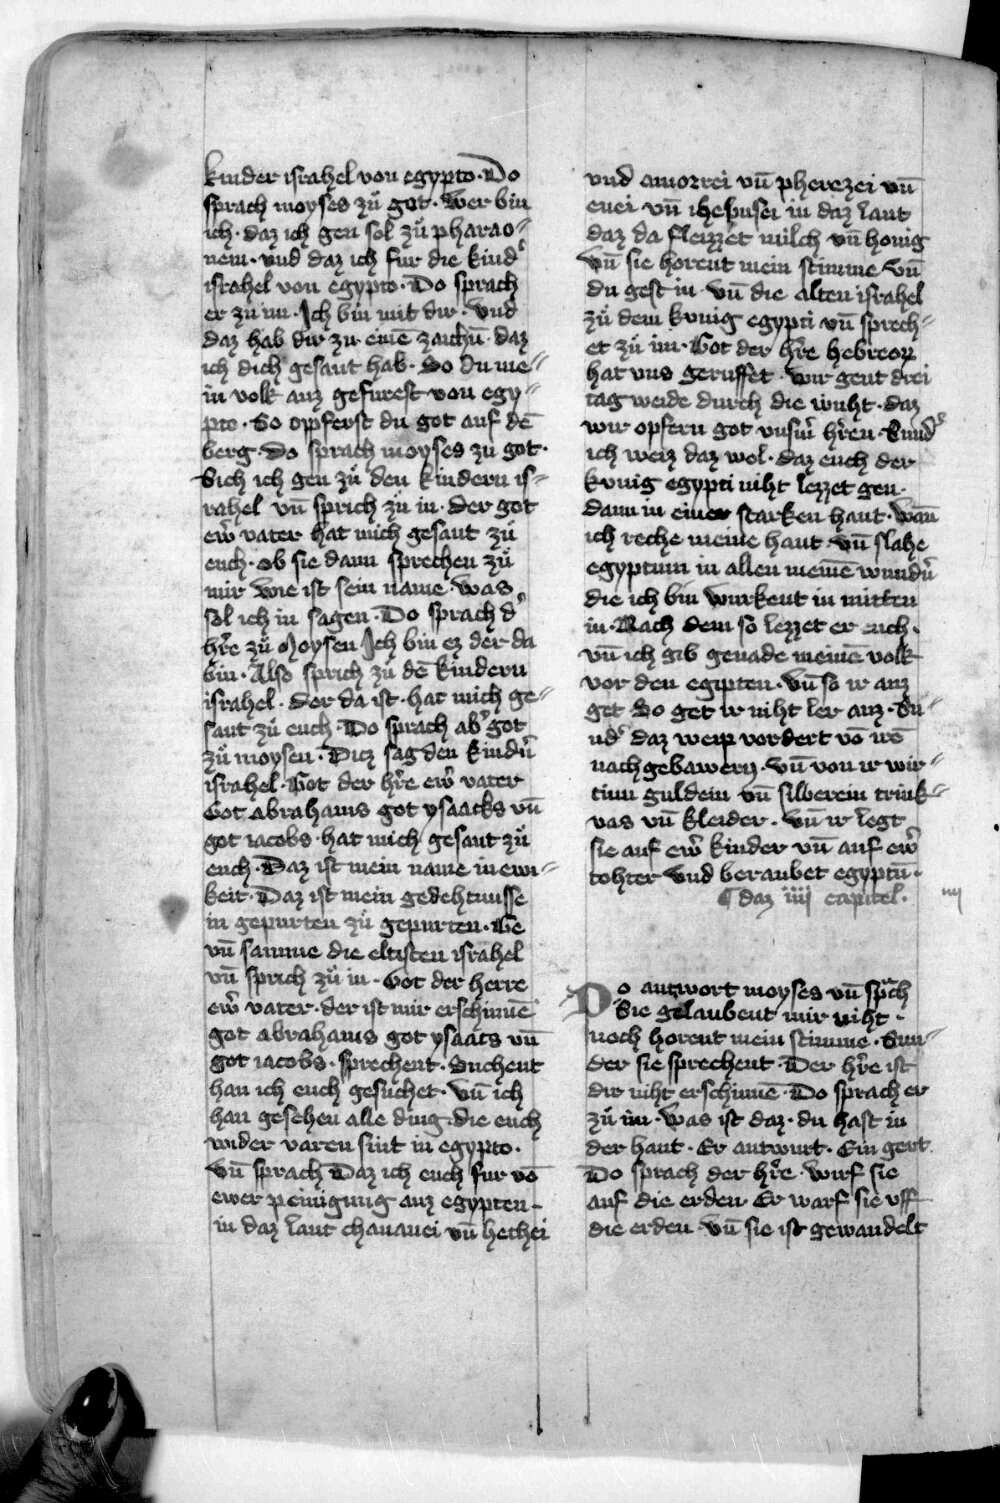 kinder israhel von egypto · Do
sprach moyses zuͦ got · Wer bin
ich · daz ich gen sol zuͦ pharao⸗
nem · vnd daz ich fur die kind᾽
israhel von egypto · Do sprach
er zu im · Ich bin mit dir · vnd
daz hab dir zu einē zaichū · daz
ich dich gesant hab · So du me⸗
in volk auz gefurest von egy⸗
pto · So opferst du got auf dē
berg · Do sprach moyses zu got ·
Sich ich gen zuͦ den kindern is⸗
rahel vn̄ sprich zuͦ in · der got
ew̄ vater hat mich gesant zuͦ
euch · ob sie dann sprechen zuͦ
mir wie ist sein name · was
sol ich in sagen · Do sprach d᾽
hr̄e zuͦ Moysen Ich bin ez der da
bin · Also sprich zu dē kindern
israhel · Der da ist · hat mich ge⸗
sant zuͦ euch · Do sprach ab᾽ got
zuͦ moysen · Ditz sag den kindn̄
israhel · Got der hr̄e ew̄ vater
Got abrahams got ysaacks vn̄
got iacobs · hat mich gesant zuͦ
euch · Daz ist mein name in ewi⸗
keit · Daz ist mein gedehtnusse
in gepurten zuͦ gepurten · Ge
vn̄ samme die eltisten israhel
vn̄ sprich zuͦ in · Got der herre
ew̄ vater · der ist mir erschinnē
got abrahams got ysaacs vn̄
got iacobs · sprechent · Suchent
han ich euch gesuchet · vn̄ ich
han gesehen alle ding · die euch
wider varen sint in egypto ·
vn̄ sprach Daz ich euch fur vō
ewer peinigung auz egypten
in daz lant chananei vn̄ hethei
vnd amorrei vn̄ pherezei vn̄
euei vn̄ ihebusei in daz lant
daz da fleizzet milch vn̄ honig
vn̄ sie horent mein stimme vn̄
du gest in · vn̄ die alten israhel
zuͦ dem kunig egypti vn̄ sprech⸗
et zuͦ im · Got der hr̄e hebreoꝝ
hat vns geruffet · wir gent drei
tag weide durch die wuͤst · daz
wir opfern got vnsm̄ hr̄en · Sund᾽
ich weiz daz wol · daz euch der
kunig egypti niht lezzet gen ·
dann in einer starken hant · wan̄
ich reche meine hant vn̄ slahe
egyptum in allen meinē wundn̄
die ich bin wurkent in mitten
in · Nach dem so lezzet er euch ·
vn̄ ich gib genade meinē volk
vor den egipten · vn̄ so ir auz
get So get ir niht ler auz · Su⸗
nd᾽ daz weip vordert vō irē
nachgebawern · vn̄ von ir wir⸗
tinn guldein vn̄ silberein trink⸗
vas vn̄ kleider · vn̄ ir legt
sie auf ew̄ kinder vn̄ auf ew̄
tohter vnd beraubet egyptū ·
¶ daz iiij capitel · iiij
Do antwort moyses vn̄ sprach
Sie gelaubent mir niht ·
noch horent mein stimme · Sun⸗
der sie sprechent · Der hr̄e ist
dir niht erschinnē · Do sprach er
zuͦ im · Was ist daz · du hast in
der hant · Er antwurt · Ein gert
Do sprach der hr̄e · wirf sie
auf die erden Er warf sie vff
die erden · vn̄ sie ist gewandelt